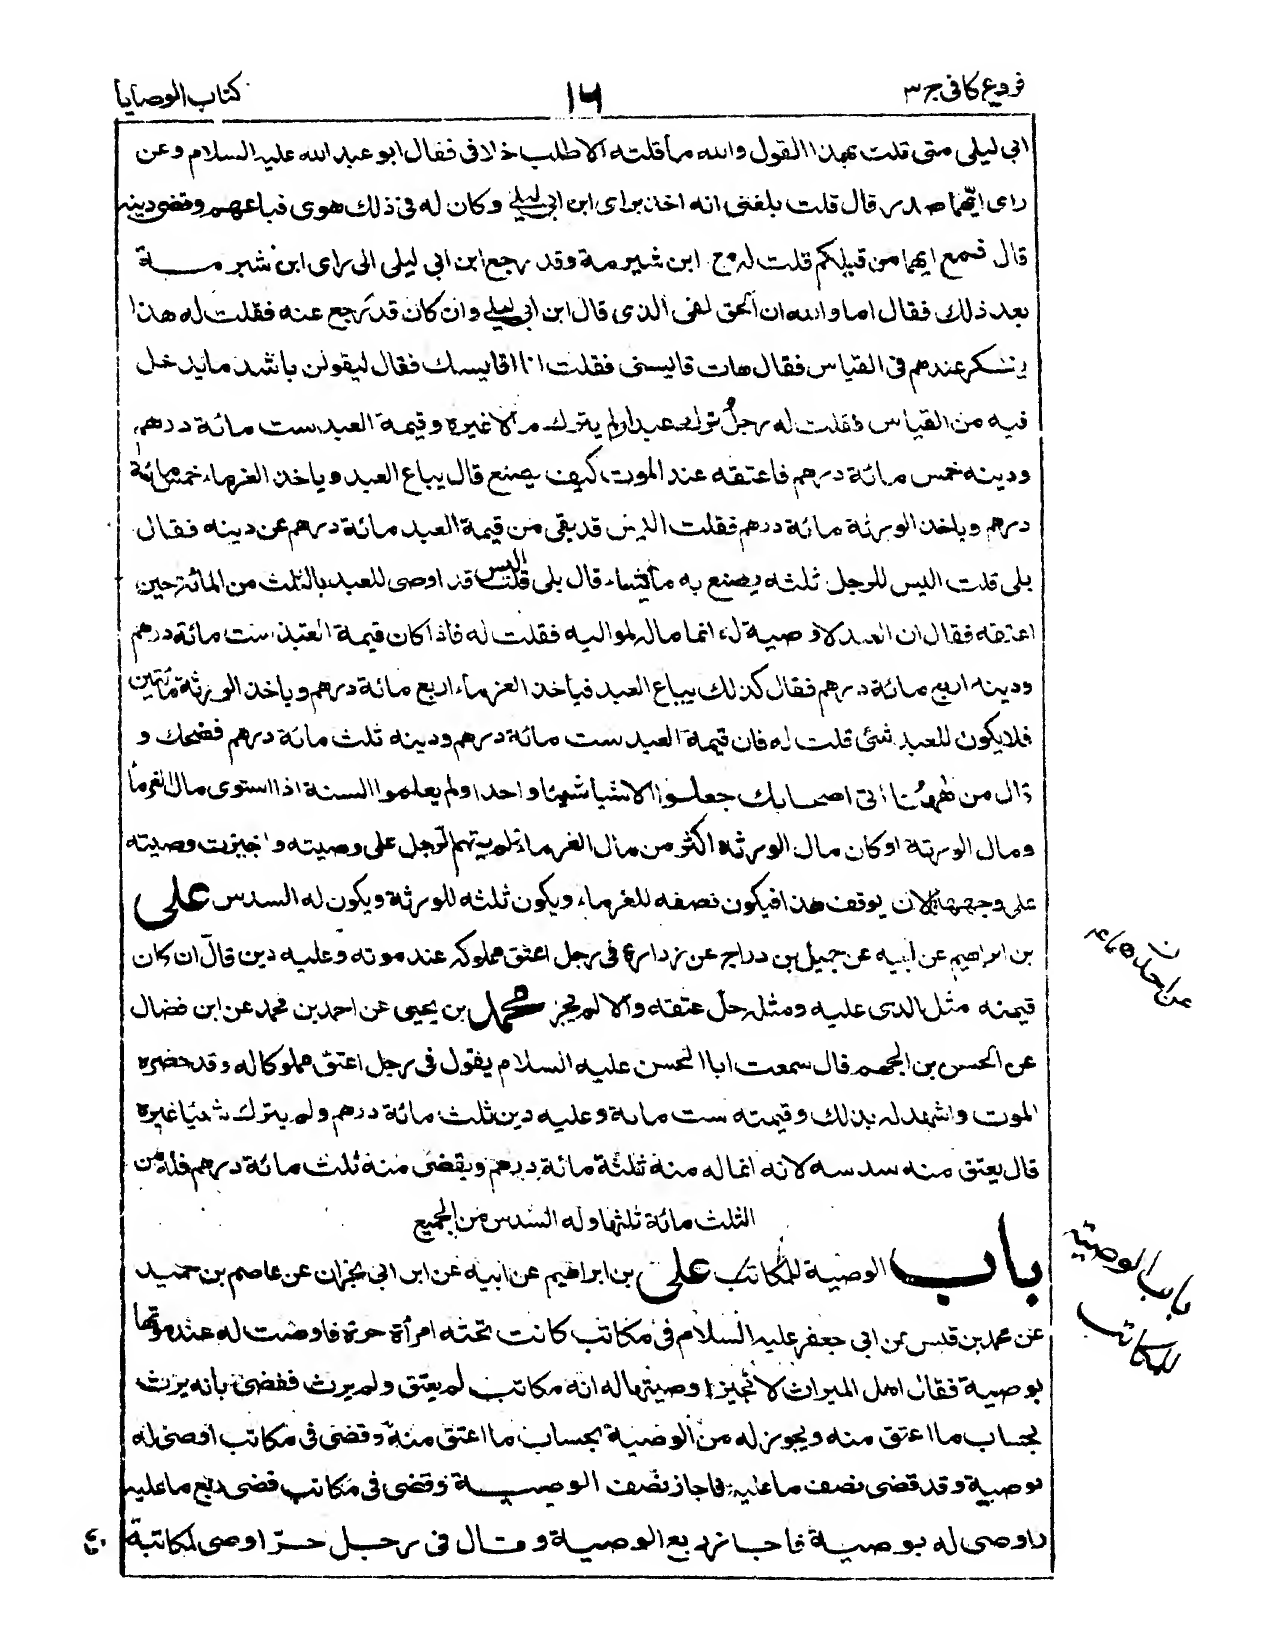 فروع کافی ج ۳
۱۶
کتاب الوصایا
ابی لیلی متی قلت بهذا القول والله ما قلته الا طلب خلافی فقال ابو عبد الله علیه السلام وعن
رای ایهما صدر قال قلت بلغنی انه اخذ برای ابن ابی لیلی وکان له فی ذلک هوی فباعهم وقضی دینه
قال فمع ایهما من قبلکم قلت له مع ابن شبرمة وقد رجع ابن ابی لیلی الی رای ابن شبرمة
بعد ذلک فقال اما والله ان الحق لفی الذی قال ابن ابی لیلی وان کان قد رجع عنه فقلت له هذا
ینکسر عندهم فی القیاس فقال هات قایسنی فقلت انا اقایسک فقال لیقولن باشد ما یدخل
فیه من القیاس فقلت له رجل ترک عبدا ولم یترک مالا غیره وقیمة العبد ست مائة درهم
ودینه خمس مائة درهم فاعتقه عند الموت کیف یصنع قال یباع العبد ویاخذ الغرماء خمس مائة
درهم ویاخذ الورثة مائة درهم فقلت الیس قد بقی من قیمة العبد مائة درهم عن دینه فقال
بلی قلت الیس للرجل ثلثه یصنع به ما یشاء قال بلی قلت الیس قد اوصی للعبد بالثلث من المائة حین
اعتقه فقال ان العبد لا وصیة له انما ماله لموالیه فقلت له فاذا کان قیمة العبد ست مائة درهم
ودینه اربع مائة درهم فقال کذلک یباع العبد فیاخذ الغرماء اربع مائة درهم ویاخذ الورثة مأتین
فلا یکون للعبد شئ قلت له فان قیمة العبد ست مائة درهم ودینه ثلث مائة درهم فضحک و
قال من ههنا اتی اصحابک جعلوا الاشیاء شیئا واحدا ولم یعلموا السنة اذا استوی مال الغرماء
ومال الورثة او کان مال الورثة اکثر من مال الغرماء لم یتهم الرجل علی وصیته واجیزت وصیته
علی وجهها فالان یوقف هذا فیکون نصفه للغرماء ویکون ثلثه للورثة ویکون له السدس علی
بن ابراهیم عن ابیه عن جمیل بن دراج عن زرارة فی رجل اعتق مملوکه عند موته وعلیه دین قال ان کان
قیمته مثل الذی علیه ومثله جاز عتقه والا لم یجز محمد بن یحیی عن احمد بن محمد عن ابن فضال
عن الحسن بن الجهم قال سمعت ابا الحسن علیه السلام یقول فی رجل اعتق مملوکا له وقد حضره
الموت واشهد له بذلک وقیمته ست مایة وعلیه دین ثلث مائة درهم ولم یترک شیئا غیره
قال یعتق منه سدسه لانه انما له منه ثلثة مائة درهم ویقضی منه ثلث مائة درهم فله من
الثلث مائة ثلثها وله السدس من الجمیع
باب الوصیة للمکاتب علی بن ابراهیم عن ابیه عن ابن ابی نجران عن عاصم بن حمید
عن محمد بن قیس عن ابی جعفر علیه السلام فی مکاتب کانت تحته امرأة حرة فاوصت له عند موتها
بوصیة فقال اهل المیراث لا نجیز وصیتها له انه مکاتب لم یعتق ولم یرث فقضی بانه یرث
بحساب ما اعتق منه ویجوز له من الوصیة بحساب ما اعتق منه وقضی فی مکاتب اوصی له
بوصیة وقد قضی نصف ما علیه فاجاز نصف الوصیة وقضی فی مکاتب قضی ربع ما علیه
واوصی له بوصیة فاجاز ربع الوصیة وقال فی رجل حر اوصی لمکاتبة
عن احدهما ع
باب الوصیة
للمکاتب